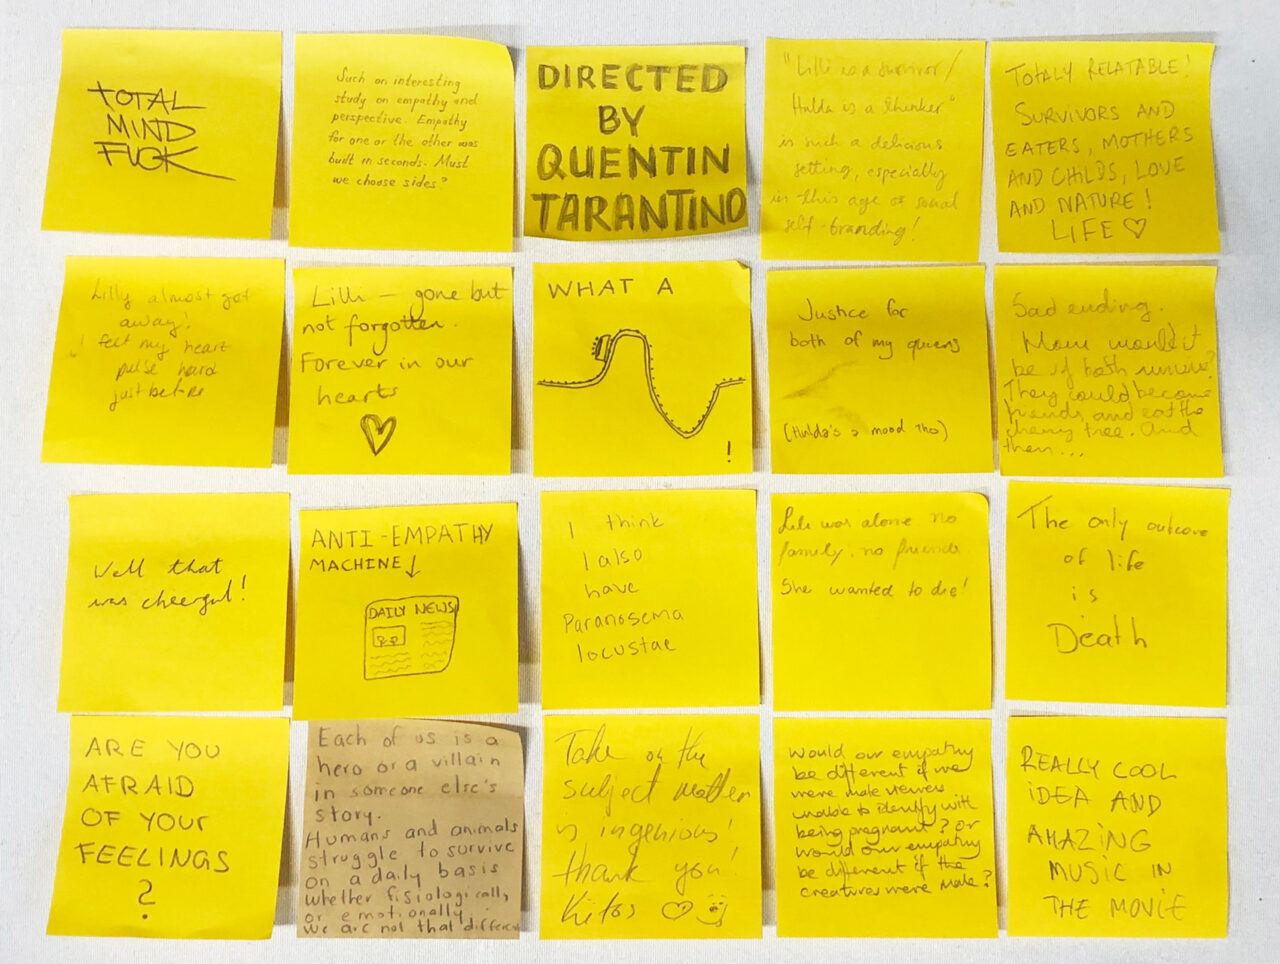 TOTAL
MIND
FUCK
Such an interesting
study on empathy and
perspective. Empathy
for one or the other was
built in seconds. Must
we choose sides?
DIRECTED
BY
QUENTIN
TARANTINO
"Lilli is a survivor /
Hulda is a thinker"
is such a delicious
setting, especially
in this age of social
self-branding!
TOTALY RELATABLE!
SURVIVORS AND
EATERS, MOTHERS
AND CHILDS, LOVE
AND NATURE!
LIFE ♡
Lilly almost got
away!
I felt my heart
pulse hard
just before
Lilli – gone but
not forgotten.
Forever in our
hearts
♡
WHAT A
!
Justice for
both of my queens
(Hulda's a mood tho)
Sad ending.
How would it
be if both survive?
They could become
friends, and eat the
cherry tree. And
then...
Well that
was cheerful!
ANTI-EMPATHY
MACHINE ↓
DAILY NEWS
I think
I also
have
Paranosema
locustae
Lilli was alone. no
family, no friends.
She wanted to die!
The only outcome
of life
is
Death
ARE YOU
AFRAID
OF YOUR
FEELINGS
?
Each of us is a
hero or a villain
in someone else's
story.
Humans and animals
struggle to survive
on a daily basis
whether fisiologically,
or emotionally
we are not that different
Take on the
subject matter
is ingenious!
thank you!
Kiitos ♡
Would our empathy
be different if we
were male viewers
unable to identify with
being pregnant? Or
would our empathy
be different if the
creatures were male?
REALLY COOL
iDEA AND
AMAZING
MUSIC IN
THE MOVIE